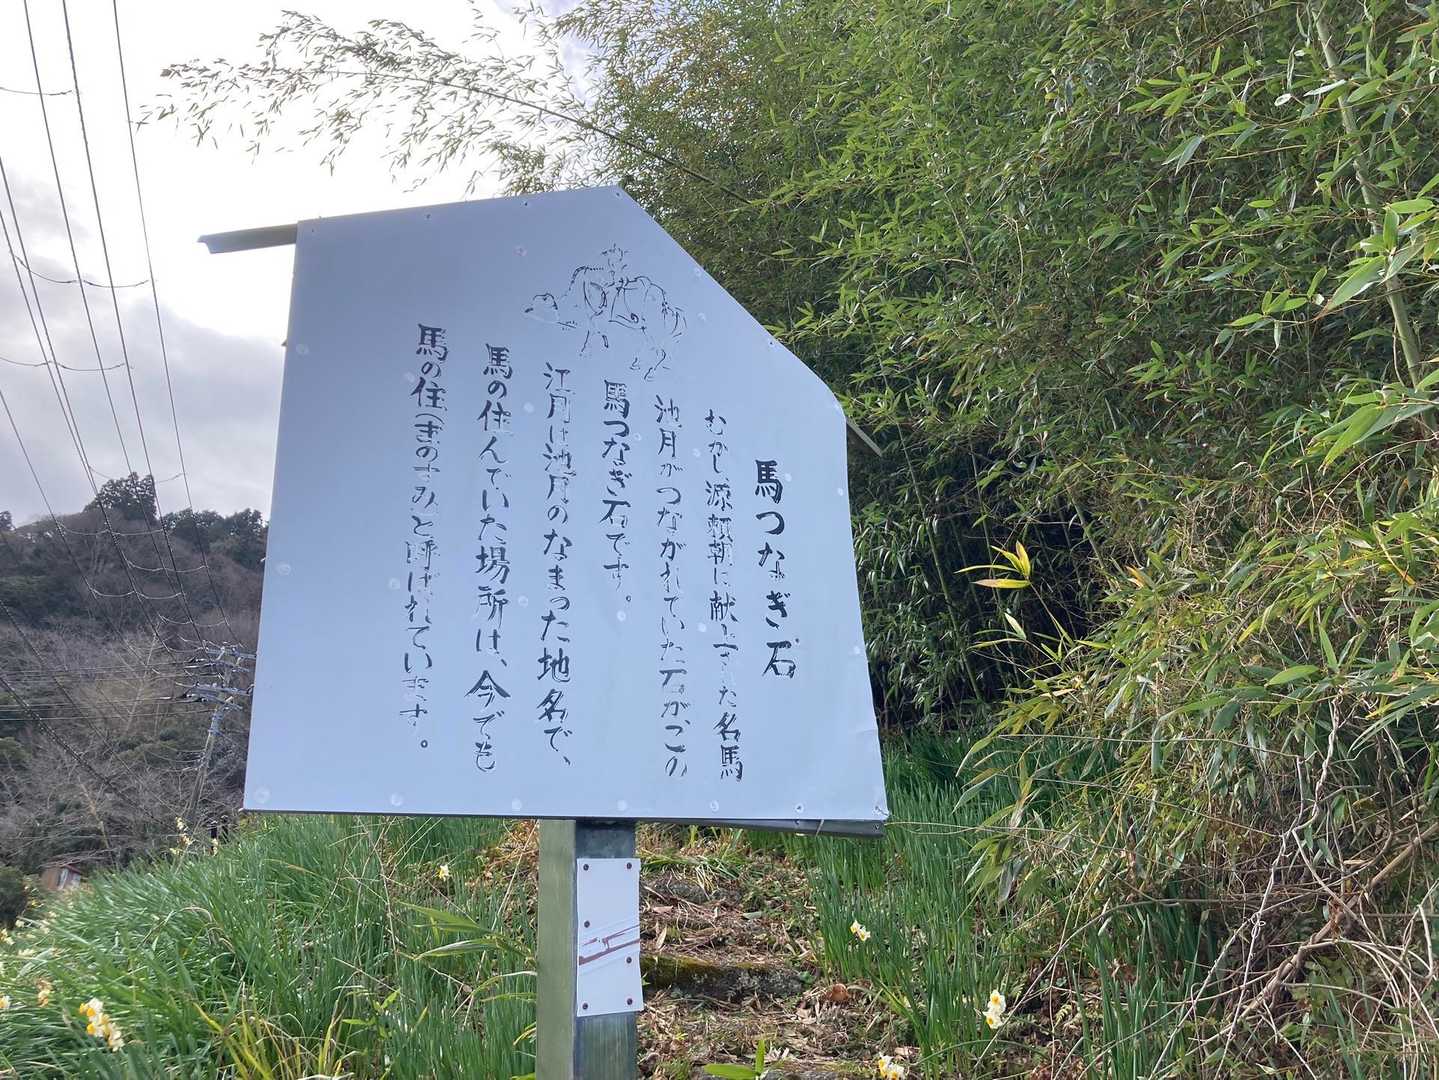 馬つなぎ石
むかし源頼朝に献上された名馬
池月がつながれていた石がこの
馬つなぎ石です。
江月は池月のなまった地名で、
馬の住んでいた場所は、今でも
馬の住(まのすみ)と呼ばれています。